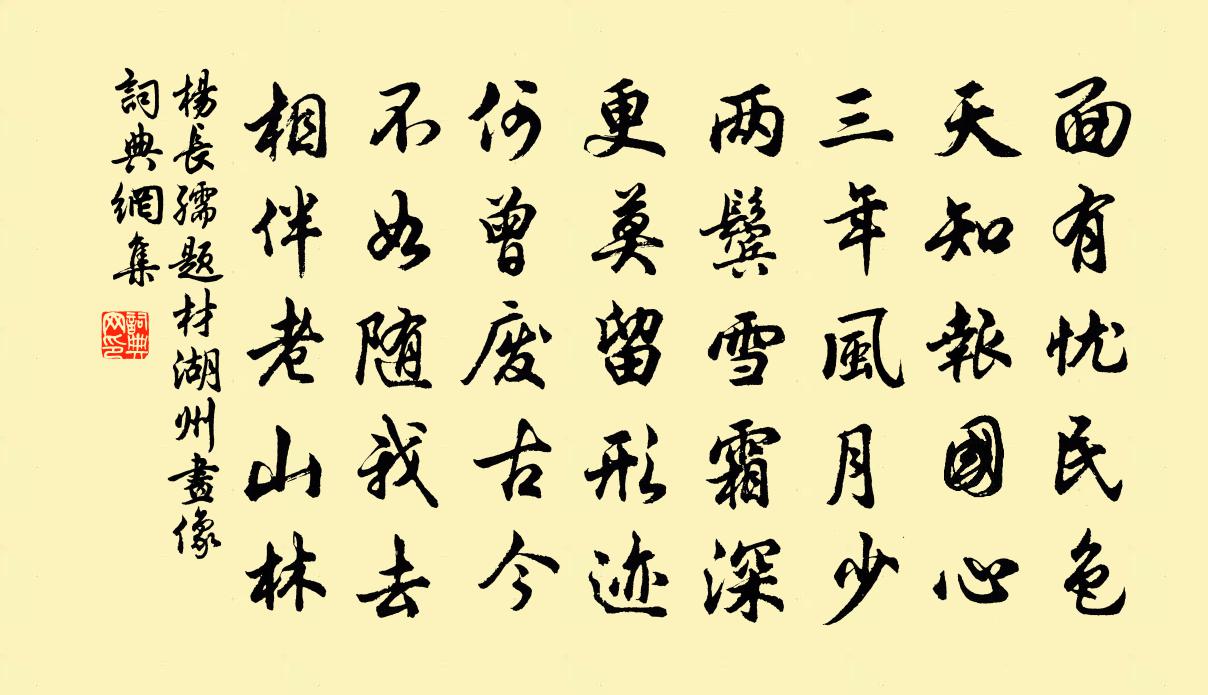 面有忧民色
天知報國心
三年風月少
两鬓雪霜深
更莫留形迹
何曾废古今
不如随我去
相伴老山林
楊長孺题材湖州畫像
詞典網集
詞典
网印